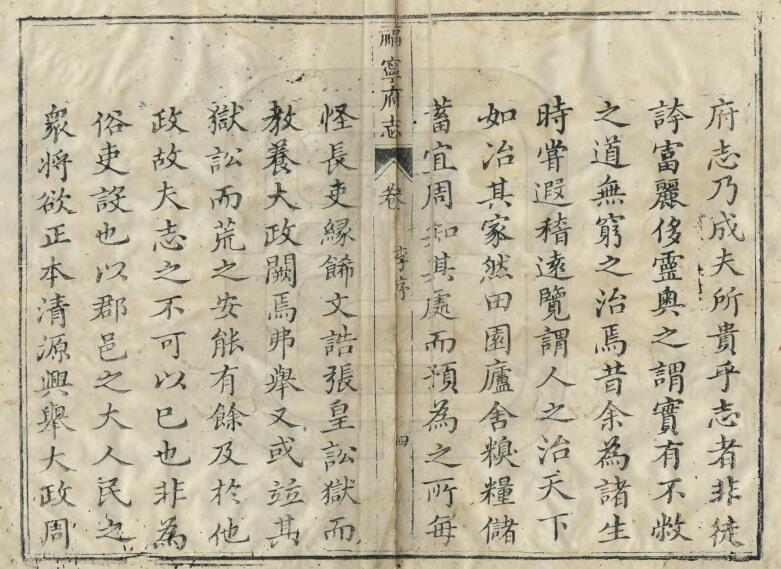 府志乃成夫所貴乎志者非徒
誇富麗侈靈奥之謂實有不敝
之道無窮之治焉昔余為諸生
時嘗遐稽遠覽謂人之治天下
如治其家然田園廬舍糗糧儲
蓄宜周知其處而預為之所每
福寧府志 卷 李序 四
怪長吏緣餙文誥張皇訟獄而
教養大政闕焉弗舉又或竝其
獄訟而荒之安能有餘及於他
政故夫志之不可以已也非為
俗吏設也以郡邑之大人民之
眾將欲正本清源興舉大政周